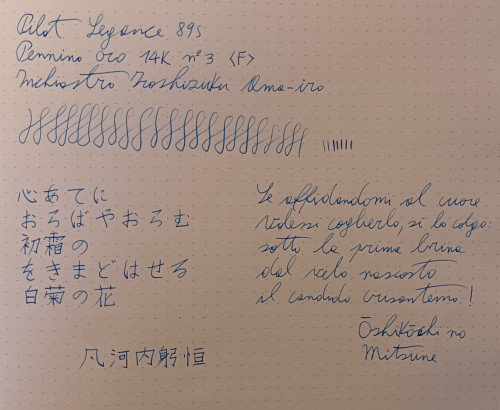 Pilot Legance 89s
Pennino oro 14K nº3 <F>
Inchiostro Iroshizuku Ama-iro
心あてに
おらばやおらむ
初霜の
をきまどはせる
白菊の花
凡河内躬恒
Se affidandomi al cuore
volessi coglierlo, sì lo colgo:
sotto la prima brina
dal velo nascosto
il candido crisantemo!
Ōshikōchi no
Mitsune